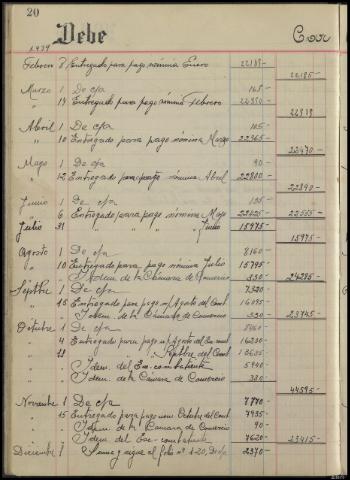 20
Debe
Con
1.939
Febrero 8 Entregado para pago nómina Enero 22185-
22185-
Marzo 1 De c/a 165-
" 14 Entregado para pago nómina Febrero
Abril 1 De c/a 105-
" 10 Entregado para pago nómina Marzo 22365-
22470-
Mayo 1 De c/a 90-
" 12 Entregado para pago nómina Abril 22800-
22890-
Junio 1 De c/a
" 6 Entregado para pago nómina Mayo
Julio 31 " " " " Junio 15975-
15975-
Agosto 1 De c/a 8160-
" 10 Entregado para pago nómina Julio 15795-
" Idem. de la Cámara de Comercio 330- 24285-
Septbre 1 De c/a 7320-
" 15 Entregado para pago n/ Agosto del Comb. 16095-
Idem. de la Cámara de Comercio 330- 23745-
Octubre 1 De c/a
" 4 Entregado para pago
" " Septbre del Comb.
" Idem. del Ex-combatiente 5940-
" Idem. de la Cámara de Comercio 330-
44595-
Noviembre 1 De c/a 7770-
" 15 Entregado para pago nom Octubre del Comb. 7935-
" Idem. de la Cámara de Comercio 90-
" Idem. del Ex-combatiente 7620- 23415-
Diciembre 1 Suma y sigue al folio nº 120, De c/a 2370-